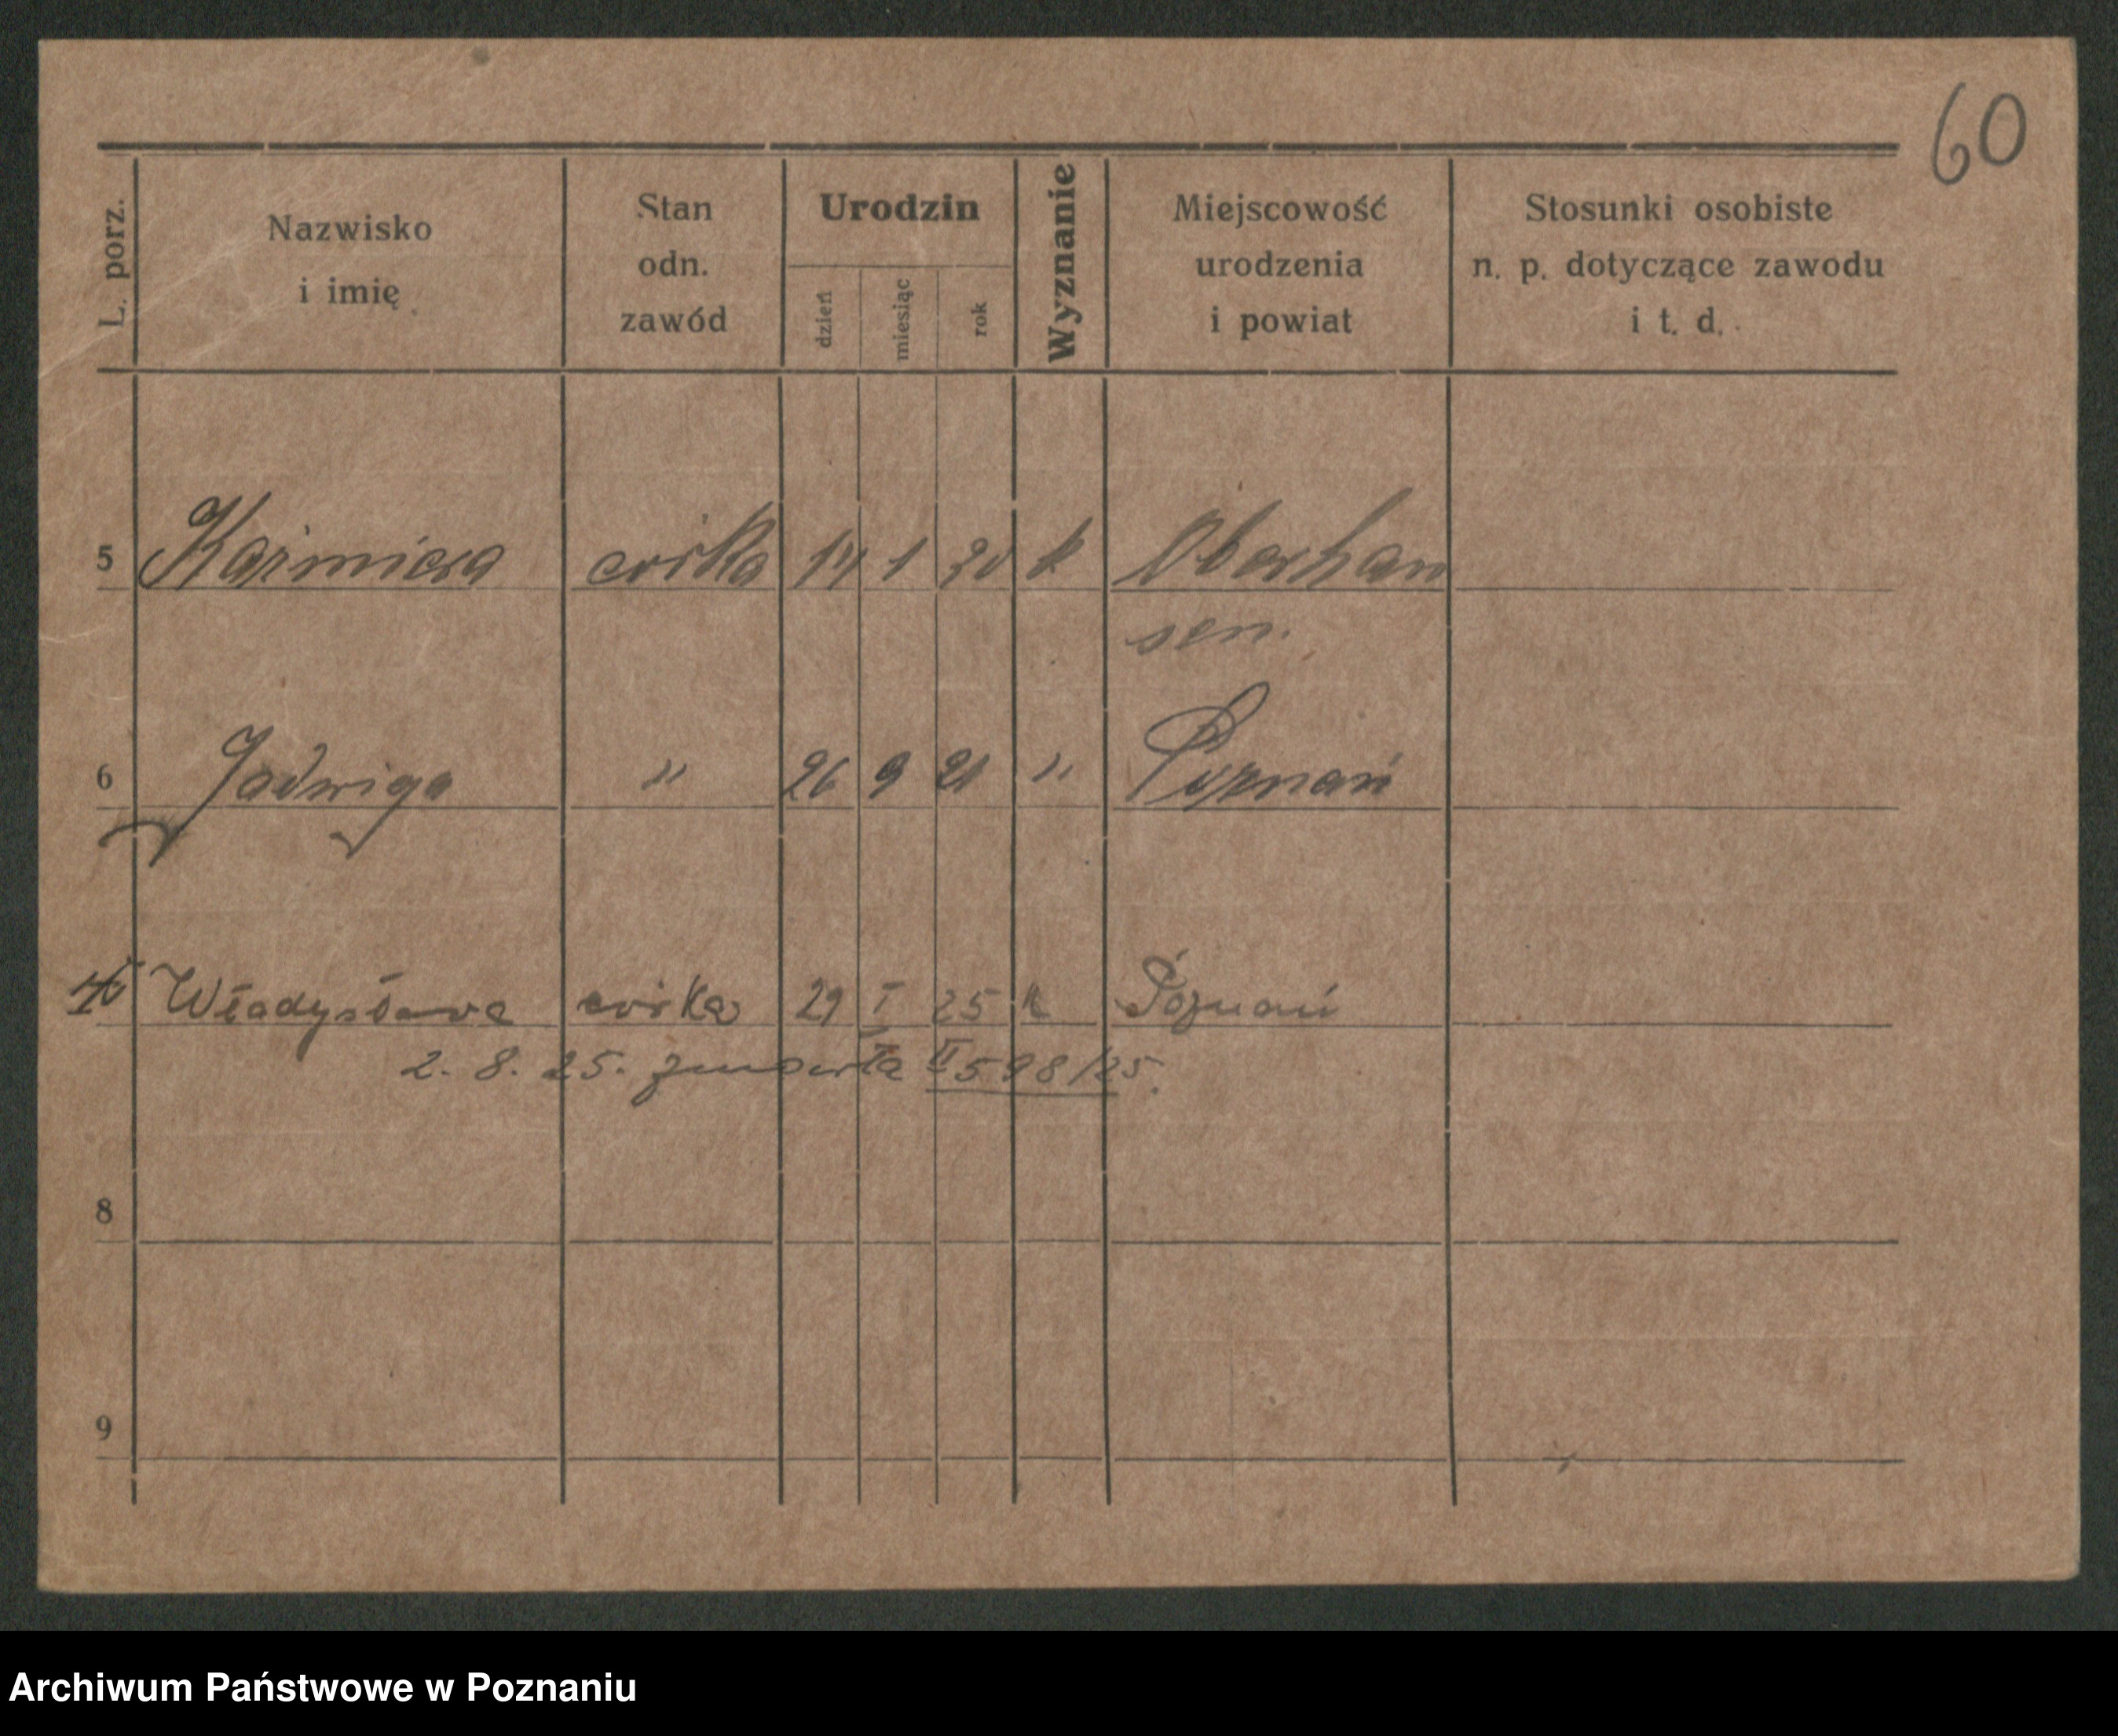 60
L. porz.
Nazwisko
i imię
Stan
odn.
zawód
Urodzin
dzień
miesiąc
rok
Wyznanie
Miejscowość
urodzenia
i powiat
Stosunki osobiste
n. p. dotyczące zawodu
i t. d.
5 Kaźmiera córka 14 1 20 k Oberhau
sen.
6 Jadwiga " 26 9 21 " Poznań
Władysława córka 29 I 25 k Poznań
2. 8. 25. zmarła II 598/25.
8
9
Archiwum Państwowe w Poznaniu